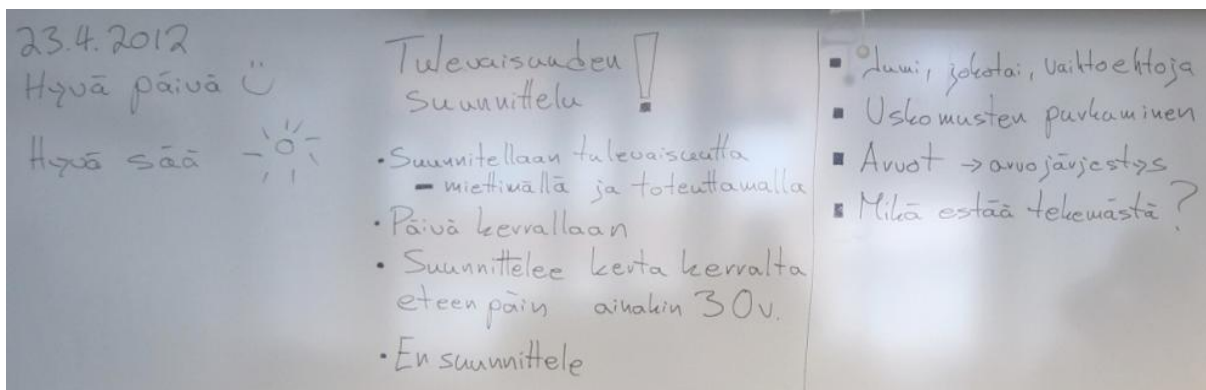 23.4.2012
Hyvä päivä
Hyvä sää
Tulevaisuuden !
suunnittelu
• Suunnitellaan tulevaisuutta
- miettimällä ja toteuttamalla
• Päivä kerrallaan
• Suunnittelee kerta kerralta
eteenpäin ainakin 30v.
• En suunnittele
▪ Jumi, jokotai, vaihtoehtoja
▪ Uskomusten purkaminen
▪ Arvot → arvojärjestys
▪ Mikä estää tekemästä?